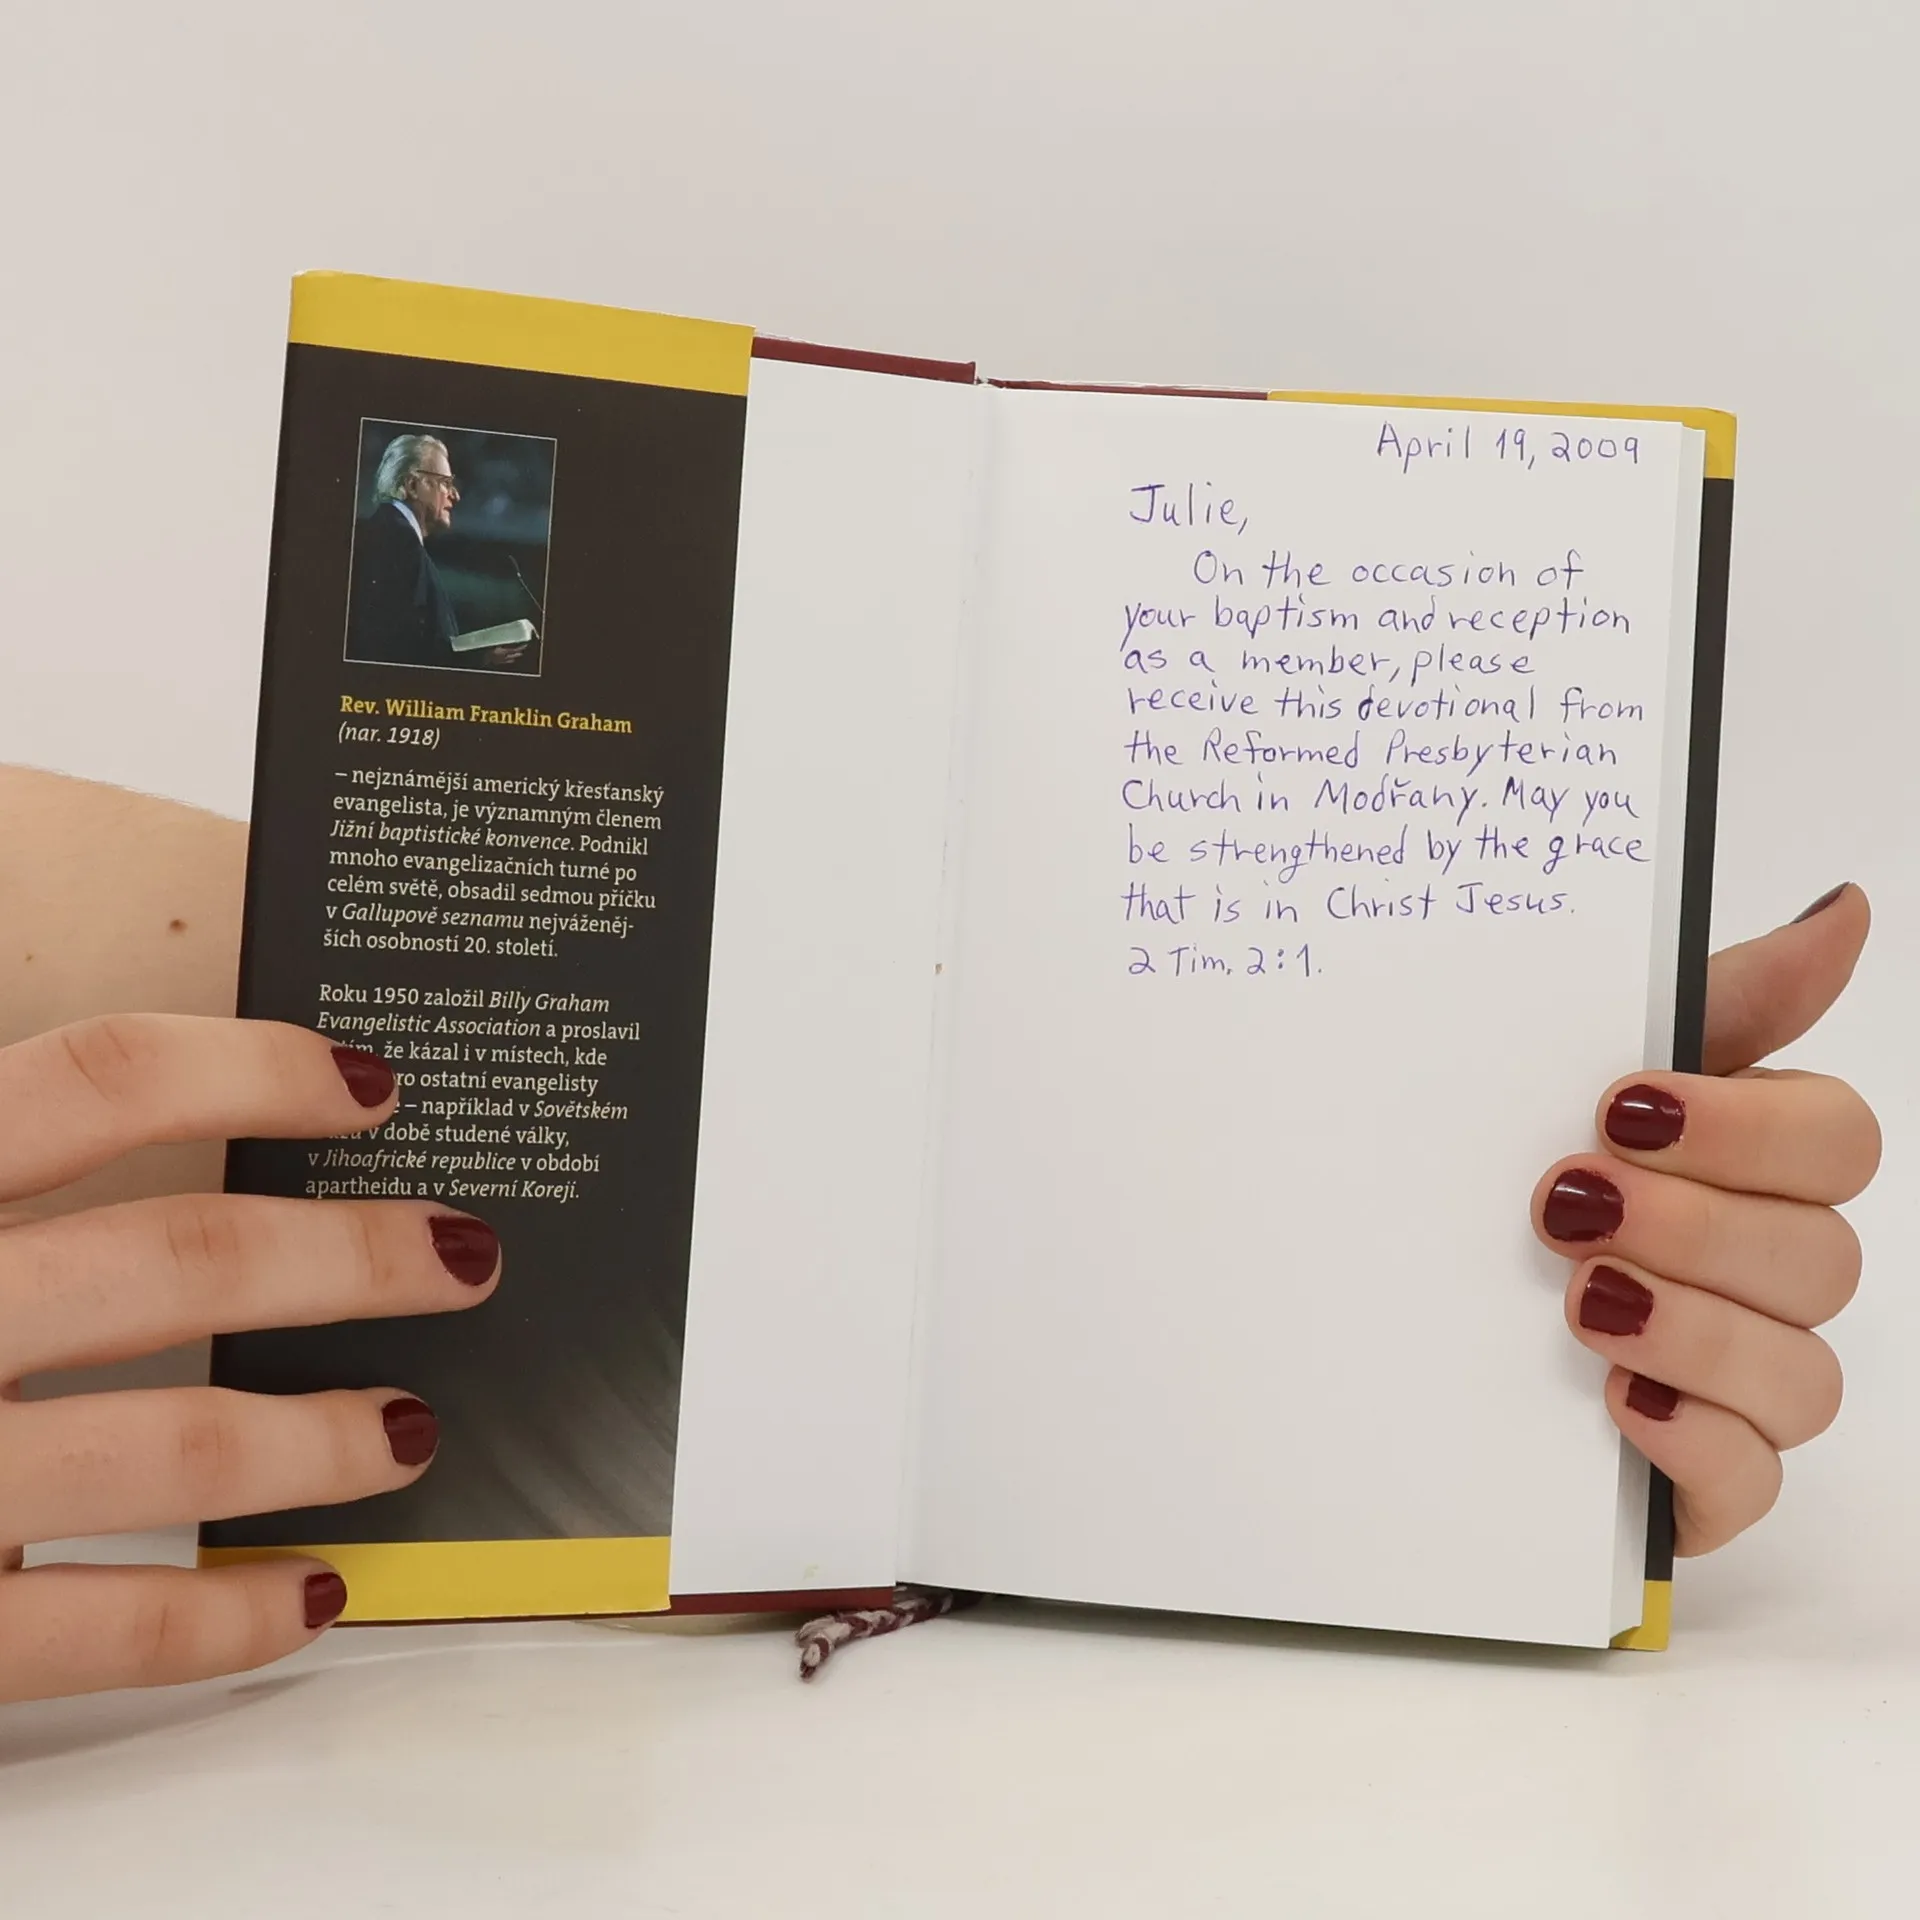 Rev. William Franklin Graham
(nar. 1918)
– nejznámější americký křesťanský
evangelista, je významným členem
Jižní baptistické konvence. Podnikl
mnoho evangelizačních turné po
celém světě, obsadil sedmou příčku
v Gallupově seznamu nejváženěj-
ších osobností 20. století.
Roku 1950 založil Billy Graham
Evangelistic Association a proslavil
že kázal i v místech, kde
ostatní evangelisty
– například v Sovětském
v době studené války,
v Jihoafrické republice v období
apartheidu a v Severní Koreji.
April 19, 2009
Julie,
On the occasion of
your baptism and reception
as a member, please
receive this devotional from
the Reformed Presbyterian
Church in Modřany. May you
be strengthened by the grace
that is in Christ Jesus.
2 Tim. 2:1.